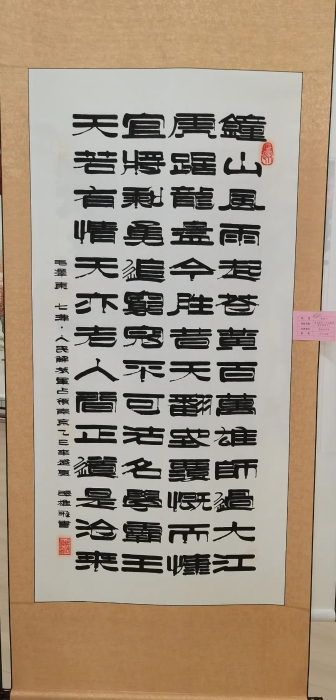 鐘山風雨起苍黄百萬雄師過大江
虎踞龍盘今胜昔天翻地覆慨而慷
宜將剩勇追窮寇不可沽名學霸王
天若有情天亦老人間正道是沧桒
毛澤東 七律·人民解放軍占領南京